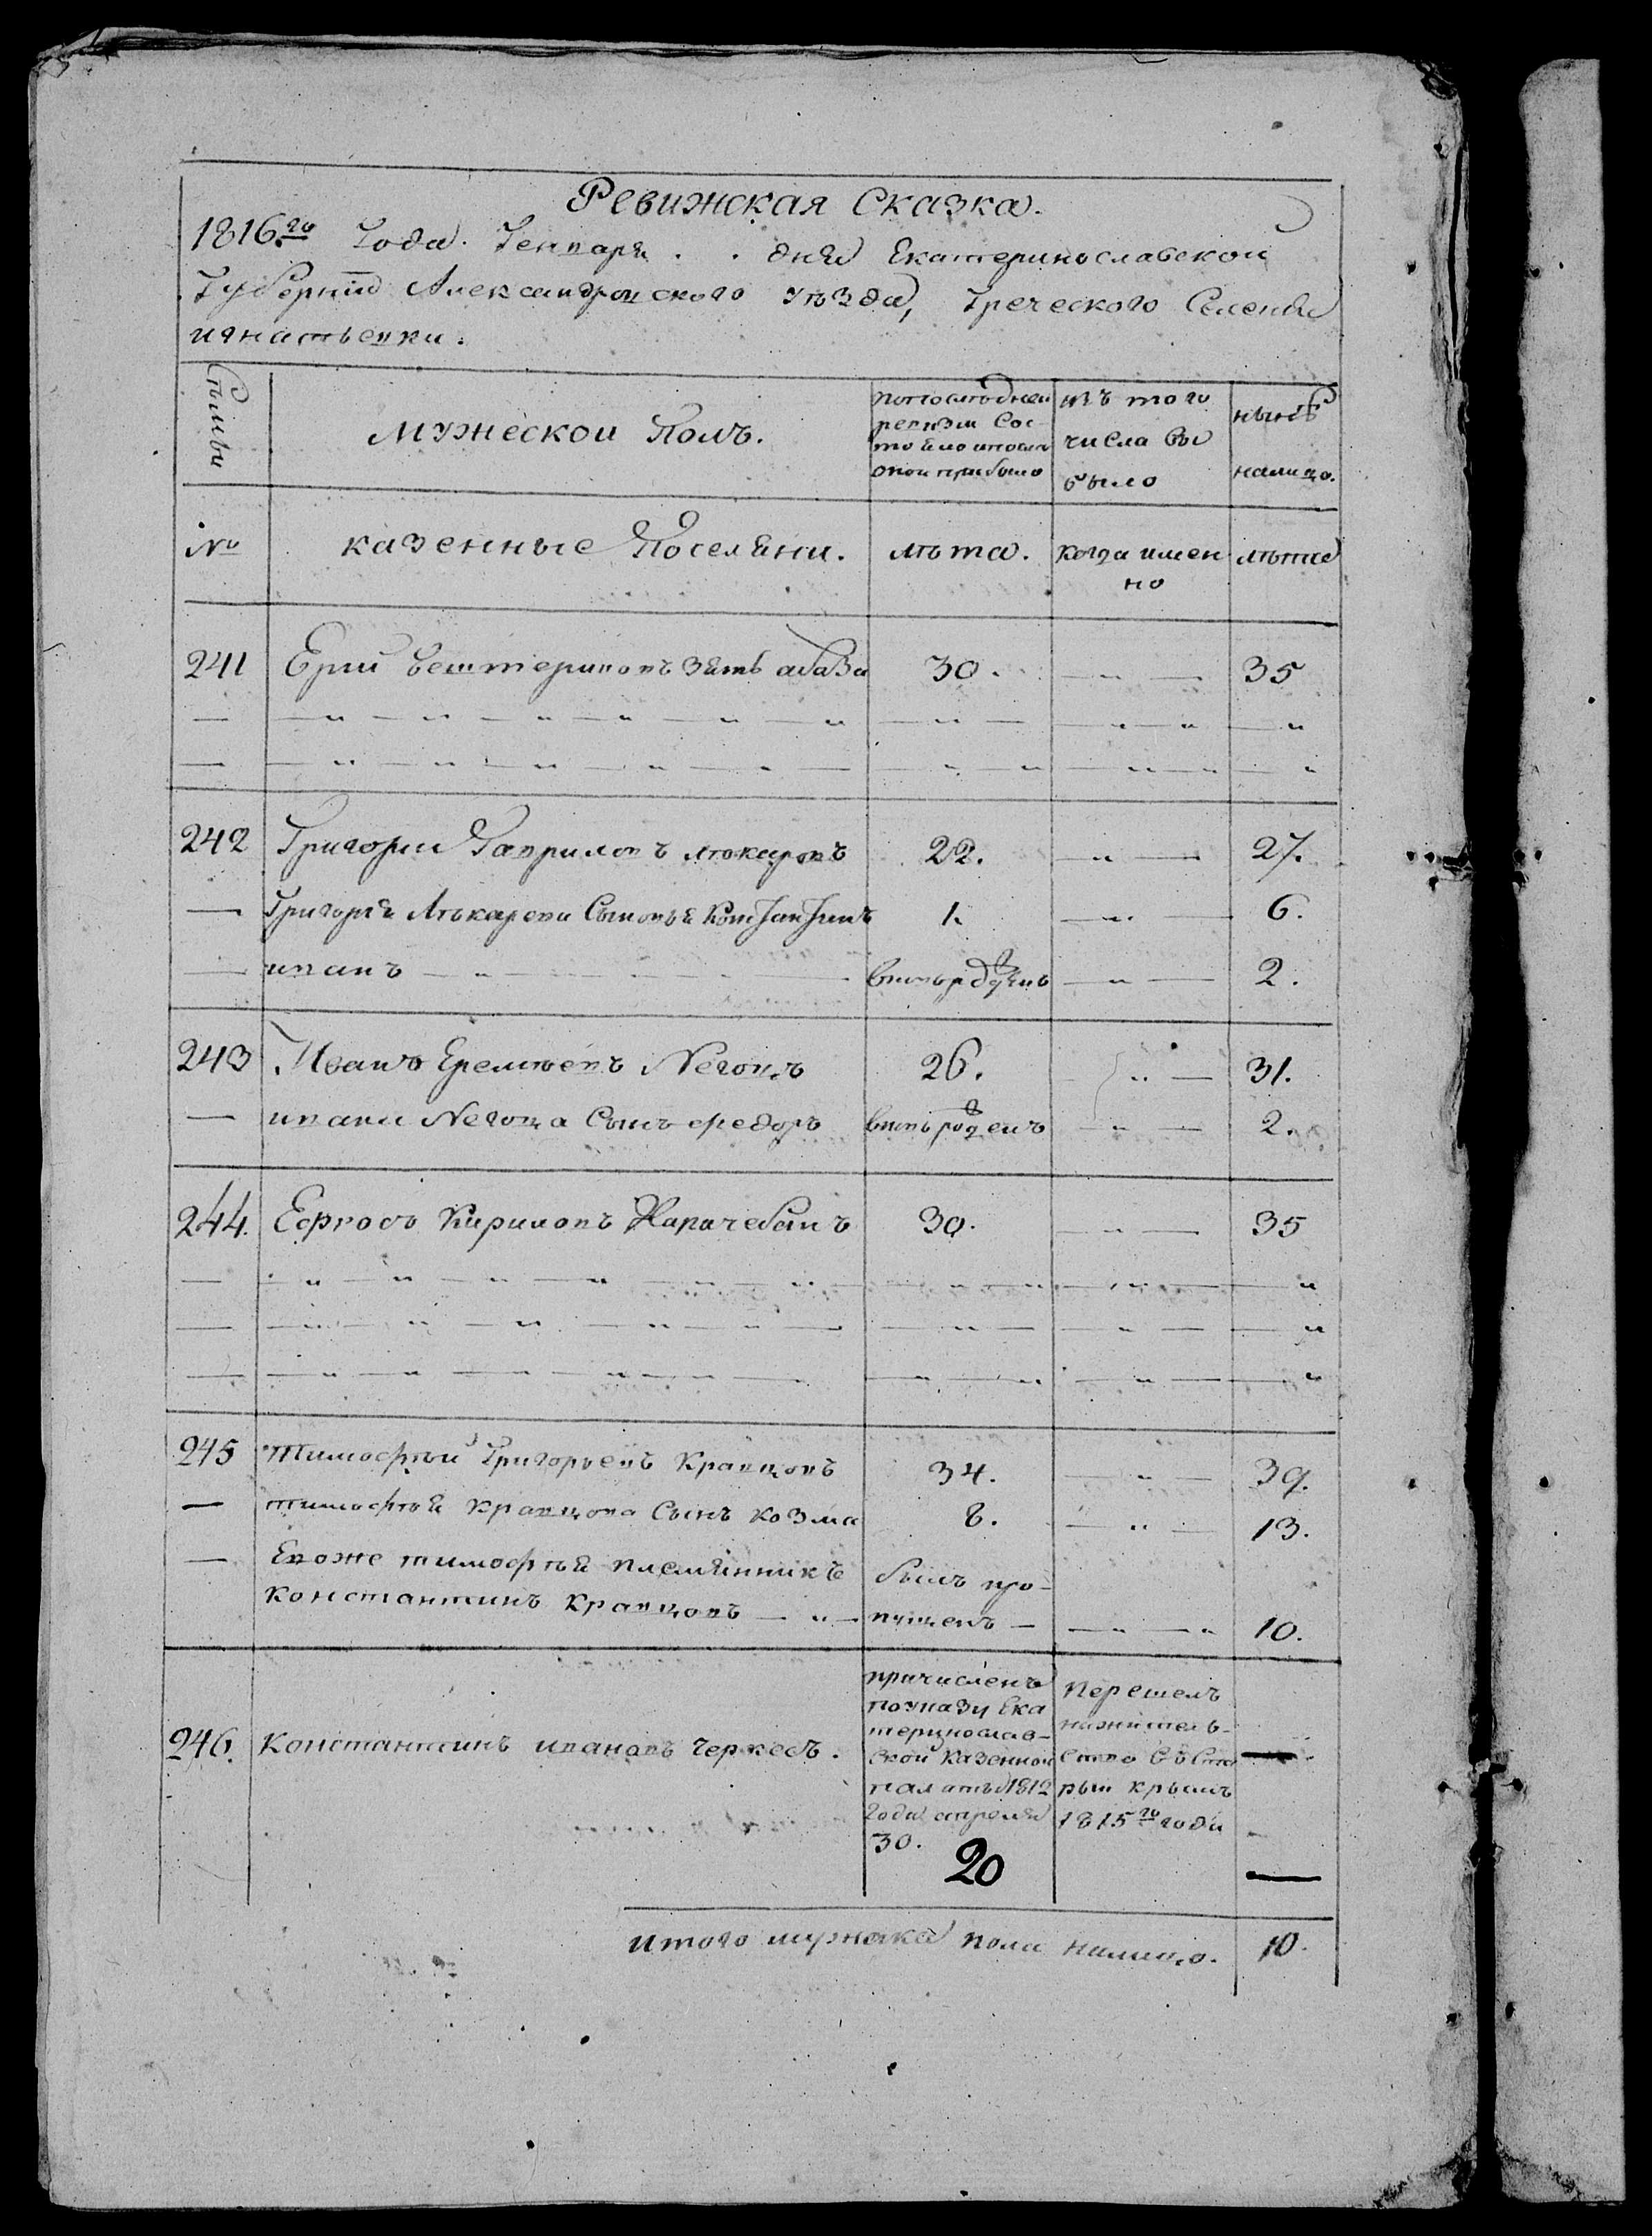 Ревижская Сказка.
1816го Года. Генваря . . дня Екатеринославской
Губернии Александровского уѣзда, Греческого Селения
игнатьевки.
Сѣмьи
мужеской Полъ.
по последней ревизии Состояло и после оной прибыло
изъ того числа выбыло
нынѣ налицо.
№ казенные Поселяни. лѣта. когда именно лѣта
241 зять 30. — „ — 35
242 Григории Гаврилов ъ Лѣкаровъ 22. „ — 27.
— Григорія Лѣкарева Сыновья Константинъ 1. — „ 6.
— иванъ — „ — — „ — 2.
243 Иванъ Еремѣевъ 26. „ — 31.
— ивана Сынъ федоръ — „ — 2.
244. Кириловъ 30. — „ — 35
245 тимофѣи Григорьевъ Кравцовъ 34. — „ — 39.
— тимофѣя кравцова Сынъ козма 8. — „ — 13.
— Евоже тимофѣя племянникъ былъ про-
константинъ кравцовъ — „ — пущенъ — — „ — „ 10.
246. константинъ ивановъ черкесъ.
причисленъ
по указу Ека
теринослав-
ской Казенной
палаты 1812
года апреля
30.
20
перешелъ
на житель-
ство въ Ста
рый крымъ
1815го года
—
—
итого мужска пола налицо. 10.